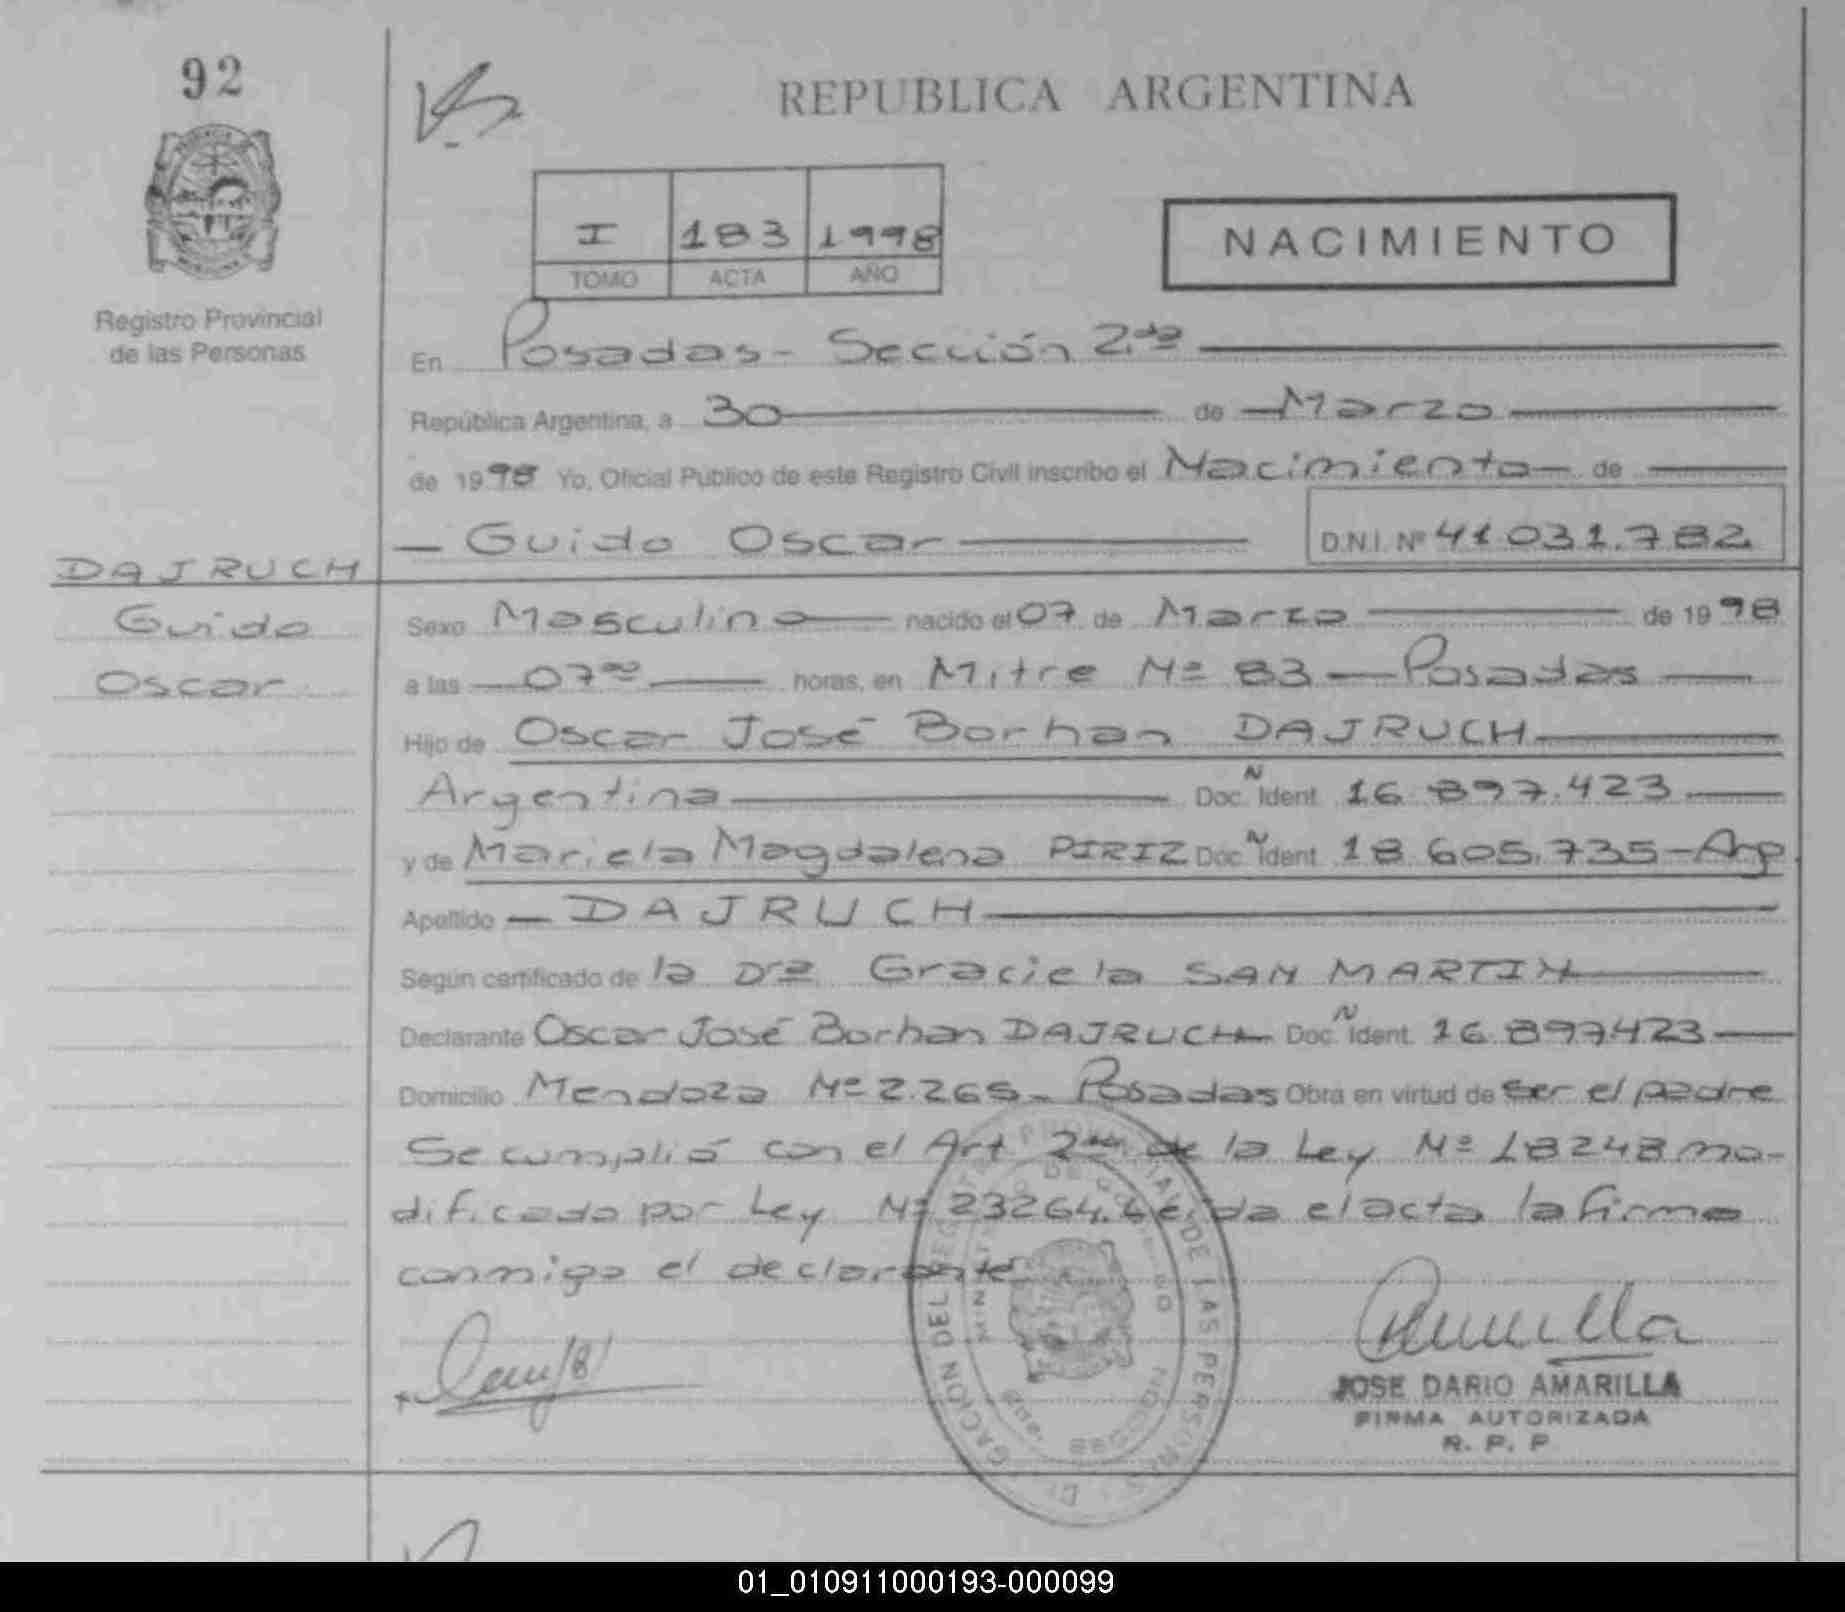 92
REPUBLICA ARGENTINA
I 183 1998
TOMO ACTA AÑO
NACIMIENTO
Registro Provincial
de las Personas
En Posadas - Sección 2da
República Argentina, a 30 de Marzo
de 1998 Yo, Oficial Público de este Registro Civil inscribo el Nacimiento de
Guido Oscar D.N.I. Nº 41.031.782
DAJRUCH
Guido
Oscar
Sexo Masculino nacido el 07 de Marzo de 1998
a las 07 horas, en Mitre Nº 83 - Posadas
Hijo de Oscar José Borhan DAJRUCH
Argentina Doc. Ñ Ident. 16.897.423
y de Mariela Magdalena PIRIZ Doc. Ñ Ident. 18.605.735 - Arg
Apellido DAJRUCH
Según certificado de la Dra. Graciela SAN MARTIN
Declarante Oscar José Borhan DAJRUCH Doc. Ñ Ident. 16.897423
Domicilio Mendoza Nº 2.265 - Posadas Obra en virtud de ser el padre
Se cumplió con el Art 2do de la Ley Nº 18248 mo-
dificado por Ley Nº 23264. Leída el acta la firma
conmigo el declarante
DELEGACION DEL REGISTRO PROVINCIAL DE LAS PERSONAS
MINISTERIO DE GOBIERNO
JOSE DARIO AMARILLA
FIRMA AUTORIZADA
R. P. P
01_010911000193-000099